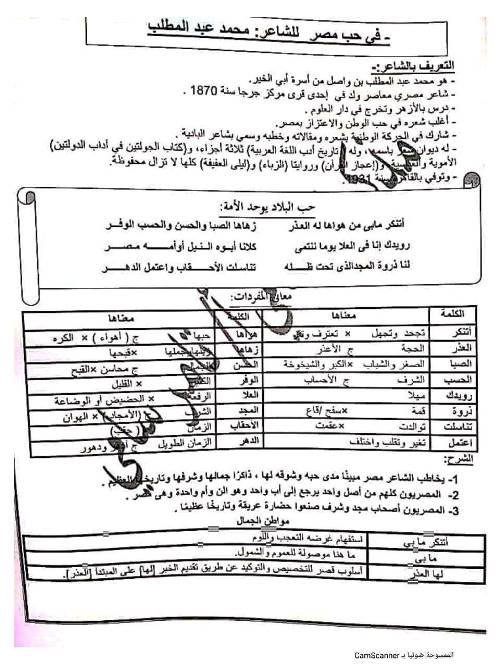 - في حب مصر للشاعر: محمد عبد المطلب
التعريف بالشاعر:-
- هو محمد عبد المطلب بن واصل من أسرة أبي الخير.
- شاعر مصري معاصر ولد في إحدى قرى مركز جرجا سنة 1870
- درس بالأزهر وتخرج في دار العلوم .
- أغلب شعره في حب الوطن والاعتزاز بمصر.
- شارك في الحركة الوطنية بشعره ومقالاته وخطبه وسمي بشاعر البادية .
- له ديوان باسمه، وله تاريخ أدب اللغة العربية) ثلاثة أجزاء، و(كتاب الجولتين في آداب الدولتين)
الأموية و(إعجاز القرآن) وروايتا (الزباء) و(ليلى العفيفة) كلها لا تزال محفوظة.
- وتوفي سنة 1931.
حب البلاد يوحد الأمة:
أتنكر مابى من هواها له العذر زهاها الصبا والحسن والحسب الوفر
رويدك إنا فى العلا يوما ننتمى كلانا أبوه النيل أو أمه مصر
لنا ذروة المجد الذى تحت ظله تناسلت الأحقاب واعتمل الدهر
معاني المفردات:
الكلمة معناها الكلمة معناها
أتنكر تجحد وتجهل × تعترف هواها حبها ج ( أهواء ) × الكره
العذر الحجة ج الأعذر زهاها ×قبحها
الصبا الصغر والشباب ×الكبر والشيخوخة الحسن ج محاسن ×القبح
الحسب الشرف ج الأحساب الوفر × القليل
رويدك مهلا العلا الرفعة × الحضيض أو الوضاعة
ذروة قمة ×سفح /قاع المجد الشرف ج (الأمجاد) × الهوان
تناسلت توالدت ×عقمت الأحقاب الزمان
اعتمل تغير وتقلب واختلف الدهر الزمان الطويل ج ودهور
الشرح:
1- يخاطب الشاعر مصر مبينًا مدى حبه وشوقه لها ، ذاكرًا جمالها وشرفها وتاريخها العظيم .
2- المصريون كلهم من أصل واحد يرجع إلى أب واحد وهو وأم واحدة وهى مصر .
3- المصريون أصحاب مجد وشرف صنعوا حضارة عريقة وتاريخًا عظيمًا .
مواطن الجمال
أتنكر ما بي استفهام غرضه التعجب واللوم
ما بي ما هنا موصولة للعموم والشمول.
لها العذر أسلوب قصر للتخصيص والتوكيد عن طريق تقديم الخبر [لها] على المبتدأ [العذر].
الممسوحة ضوئيا بـ CamScanner